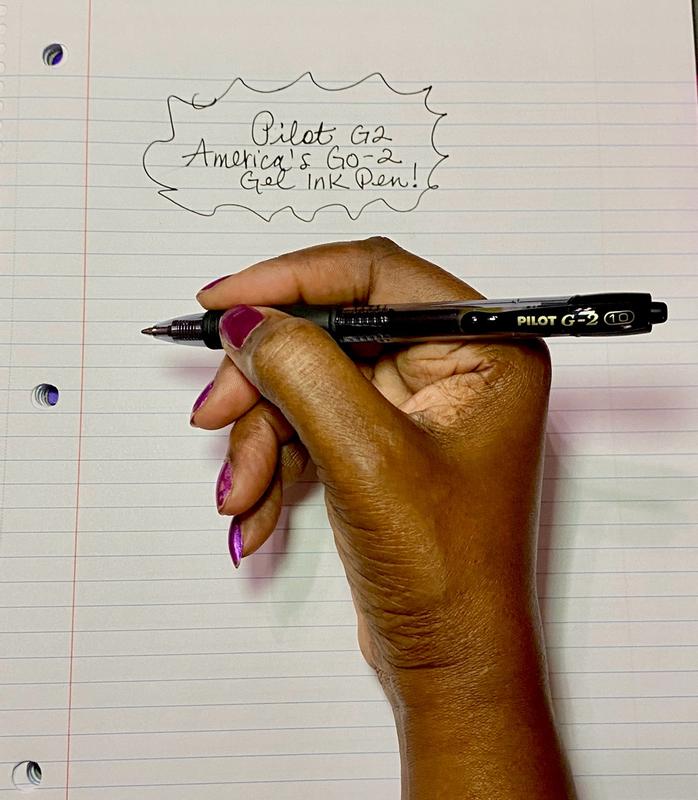 Pilot G2
America's Go-2
Gel Ink Pen!
PILOT G-2 10